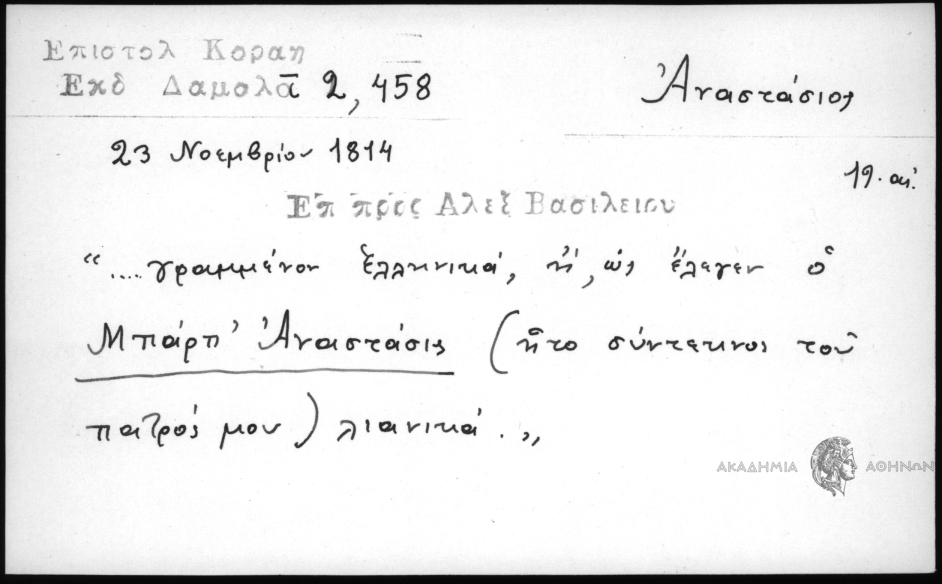 Επιστολ Κοραη
Εκδ Δαμαλᾶ 2, 458
Ἀναστάσιος
23 Νοεμβρίου 1814
19. αι.
Επ προς Αλεξ Βασιλειου
“....γραμμένον ἑλληνικά, ἤ, ὡς ἔλεγεν ὁ
Μπάρπ' Ἀναστάσις (ἦτο σύντεκνος τοῦ
πατρός μου) λιανικά.„
ΑΚΑΔΗΜΙΑ ΑΘΗΝΩΝ